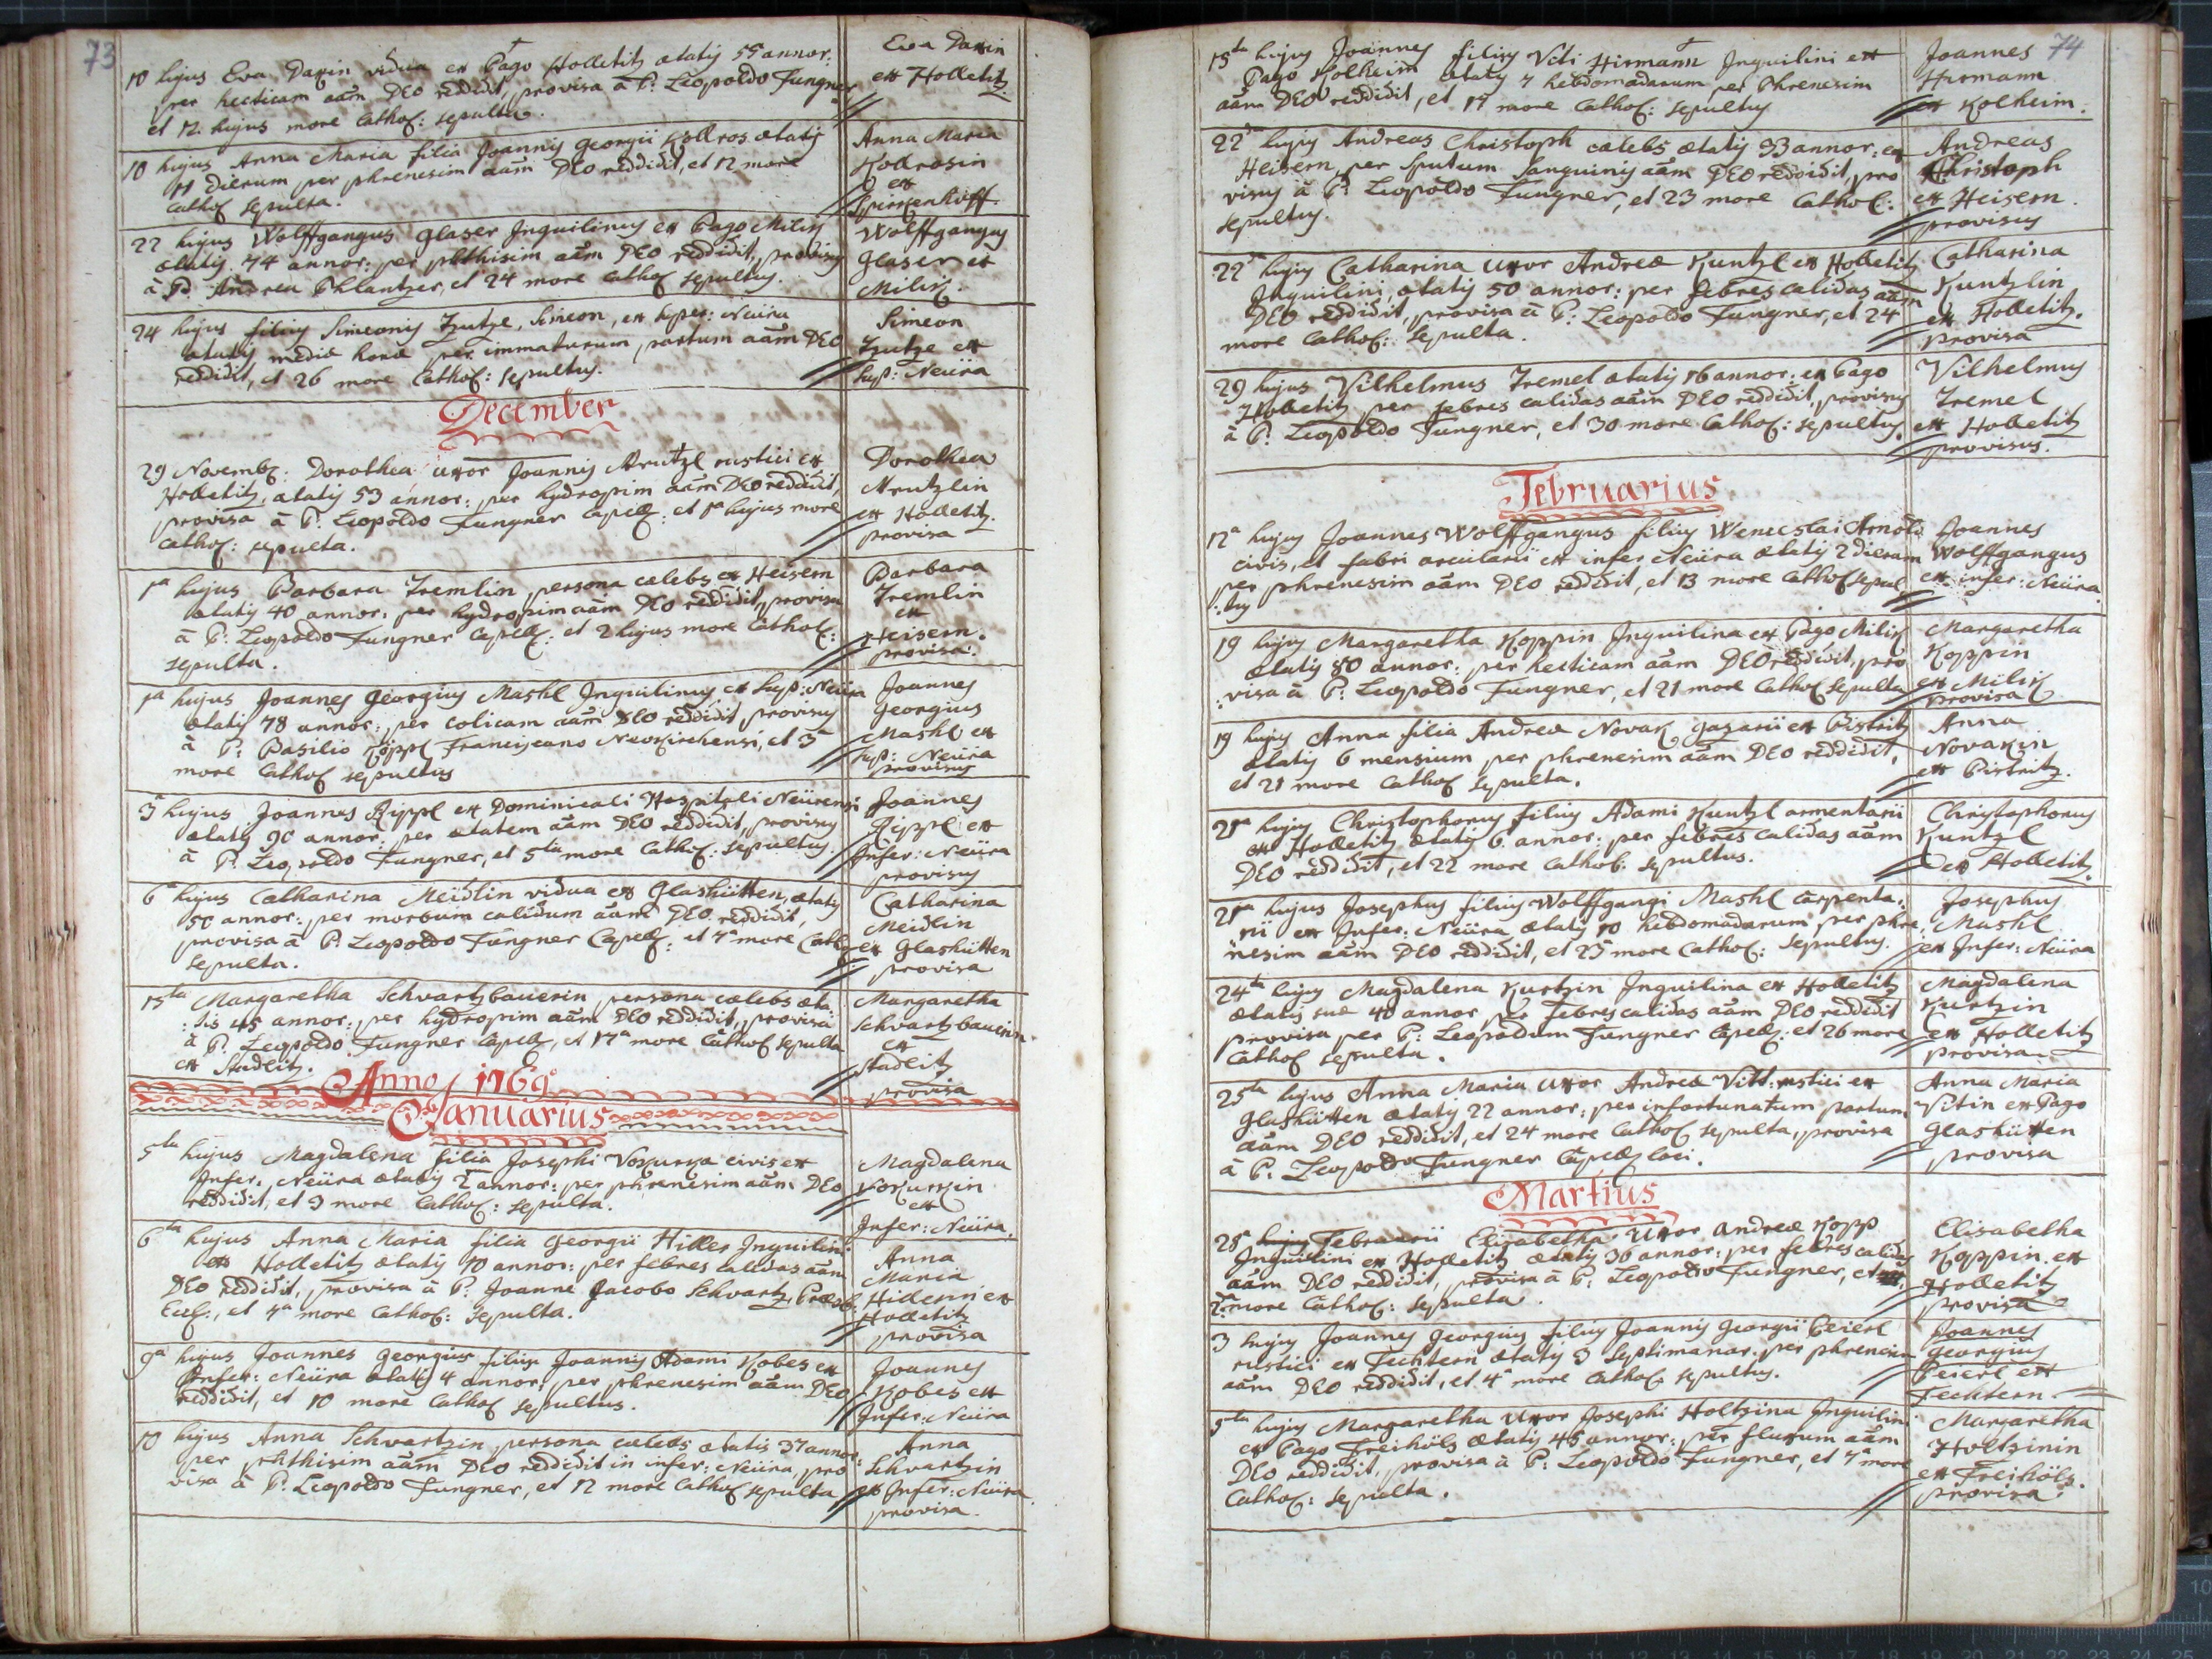 73
10 hujus Eva Daxin vidua ex Pago Holletitz ætatis 55 annor:
per hecticam aãm DEO reddidit, provisa à P: Leopoldo Fungner
et 12. hujus more Cathol: sepulta.
Eva Daxin
ex Holletitz.
10 hujus Anna Maria filia Joannis Georgii Kollros ætatis
dierum per phrenesim aãm DEO reddidit, et 12 more
Cathol sepulta.
Anna Maria
Kollrosin
ex
22 hujus Wolffgangus Glaser Inquilinus ex Pago Milik
ætatis 74 annor: per phthisim aãm DEO reddidit, provisus
à P. Andrea Phlantzer, et 24 more Cathol sepultus.
Wolffgangus
Glaser ex
Milik.
24 hujus filius Simeonis Tzutze, Simeon, ex super: Neüra
ætatis mediæ horæ per immaturum partum aãm DEO
reddidit, et 26 more Cathol: sepultus.
Simeon
Tzutze ex
sup: Neüra
December
29 Novemb: Dorothea uxor Joannis Mrutzl rustici ex
Holletitz, ætatis 53 annor: per hydropim aãm DEO reddidit,
provisa à P: Leopoldo Fungner Capell: et 1ª hujus more
Cathol: sepulta.
Dorothea
Mrutzlin
ex Holletitz.
provisa
1ª hujus Barbara Tremlin persona cælebs ex Heisern
ætatis 40 annor: per hydropim aãm DEO reddidit, provisa
à P: Leopoldo Fungner Capell: et 2 hujus more Cathol:
sepulta.
Barbara
Tremlin
ex
Heisern.
provisa.
1ª hujus Joannes Georgius Mashl Inquilinus ex sup: Neüra
ætatis 78 annor: per colicam aãm DEO reddidit provisus
à P: Basilio Köppl Franciscano Neokirchensi, et 3ª
more Cathol sepultus
Joannes
Georgius
Mashl ex
sup: Neüra
provisus
3ª hujus Joannes Rippl ex Dominicali Hospitali Neürensi
ætatis 90 annor: per ætatem aãm DEO reddidit, provisus
à P: Leopoldo Fungner, et 5ta more Cathol: sepultus.
Joannes
Rippl ex
Infer: Neüra
provisus
6ª hujus Catharina Meidlin vidua ex Glashütten, ætatis
50 annor: per morbum calidum aãm DEO reddidit,
provisa à P. Leopoldo Fungner Capell: et 7ª more Cathol
sepulta.
Catharina
Meidlin
ex Glashütten
provisa
15ta Margaretha Schvartzbauerin persona cælebs æta:
:tis 45 annor: per hydropim aãm DEO reddidit, provisa
à P. Leopoldo Fungner Capell, et 17ª more Cathol sepulta
ex Stadlitz.
Margaretha
Schvartzbauerin
ex
Stadlitz
provisa
Anno 1769
Januarius
5ta hujus Magdalena filia Josephi civis ex
Infer: Neüra ætatis 2 annor: per phrenesim aãm DEO
reddidit, et 9 more Cathol: sepulta.
Magdalena
ex
Infer: Neüra.
6ta hujus Anna Maria filia Georgii Hiller Inquilini
ex Holletitz ætatis 10 annor: per febres calidas aãm
DEO reddidit, provisa à P. Joanne Jacobo Schvartz, Presb:
Eccl:, et 7ª more Cathol: sepulta.
Anna
Maria
Hillerin ex
Holletitz
provisa
9ª hujus Joannes Georgius filius Joannis Adami Kobes ex
Infer: Neüra ætatis 4 annor: per phrenesim aãm DEO
reddidit, et 10 more Cathol sepultus.
Joannes
Kobes ex
Infer: Neüra
10 hujus Anna Schvartzin persona cælebs ætatis 37 annor:
per phthisim aãm DEO reddidit in infer: Neüra, pro
visa à P: Leopoldo Fungner, et 12 more Cathol sepulta
Anna
Schvartzin
ex Infer: Neüra
provisa.
74
15ta hujus Joannes filius Viti Hirmann Inquilini ex
Pago Kolheim ætatis 7 hebdomadarum per Phrenesim
aãm DEO reddidit, et 17 more Cathol: sepultus
Joannes
Hirmann
ex Kolheim.
22 hujus Andreas Christoph cælebs ætatis 33 annor: ex
Heisern, per sputum sanguinis aãm DEO reddidit, pro
visus à P: Leopoldo Fungner, et 23 more Cathol:
sepultus.
Andreas
Christoph
ex Heisern.
provisus
22 hujus Catharina uxor Andreæ Kuntzl ex Holletitz
Inquilini, ætatis 50 annor: per febres calidas aãm
DEO reddidit, provisa à P: Leopoldo Fungner, et 24
more Cathol: sepulta.
Catharina
Kuntzlin
ex Holletitz.
provisa
29 hujus Vilhelmus Tremel ætatis 16 annor: ex Pago
Holletitz per febres calidas aãm DEO reddidit, provisus
à P: Leopoldo Fungner, et 30 more Cathol: sepultus.
Vilhelmus
Tremel
ex Holletitz
provisus.
Februarius
12ª hujus Joannes Wolffgangus filius Wenceslai Arnold
civis, et fabri arcularii ex infer. Neüra ætatis 2 dierum
per phrenesim aãm DEO reddidit, et 13 more Cathol sepul
:tus
Joannes
Wolffgangus
ex infer: Neüra.
19 hujus Margaretha Koppin Inquilina ex Pago Milik
ætatis 80 annor: per hecticam aãm DEO reddidit, pro
:visa à P: Leopoldo Fungner, et 21 more Cathol sepulta
Margaretha
Koppin
ex Milik
provisa
19 hujus Anna filia Andreæ Novak gazarii ex Bistritz
ætatis 6 mensium per phrenesim aãm DEO reddidit,
et 21 more Cathol sepulta.
Anna
Novakin
ex Bistritz.
21ª hujus Christophorus filius Adami Kuntzl armentarii
ex Holletitz ætatis 6 annor: per febres calidas aãm
DEO reddidit, et 22 more Cathol: sepultus.
Christophorus
Kuntzl
ex Holletitz.
21ª hujus Josephus filius Wolffgangi Mashl Carpenta:
rii ex Infer: Neüra ætatis 10 hebdomadarum per phre
nesim aãm DEO reddidit, et 23 more Cathol: sepultus.
Josephus
Mashl
ex Infer: Neüra
24ta hujus Magdalena Kurtzin Inquilina ex Holletitz
ætatis suæ 40 annor per Febres calidas aãm DEO reddidit
provisa per P: Leopoldum Fungner Capell: et 26 more
Cathol sepulta.
Magdalena
Kurtzin
ex Holletitz
provisa
25ta hujus Anna Maria uxor Andreæ Vitt: rustici ex
Glashütten ætatis 22 annor: per infortunatum partum
aãm DEO reddidit, et 24 more Cathol sepulta, provisa
à P: Leopoldo Fungner Capell loci.
Anna Maria
Vitin ex Pago
Glashütten
provisa
Martius
28 hujus Februarii Elisabetha Uxor Andreæ Kopp
Inquilini ex Holletitz ætatis 36 annor: per febres calidas
aãm DEO reddidit, provisa à P: Leopoldo Fungner, et
2. more Cathol: sepulta.
Elisabetha
Koppin ex
Holletitz
provisa
3 hujus Joannes Georgius filius Joannis Georgii Beierl
rustici ex Fechtern ætatis 3 septimanar: per phrenesim
aãm DEO reddidit, et 4ª more Cathol sepultus.
Joannes
Georgius
Beierl ex
Fechtern.
5ta hujus Margaretha uxor Josephi Holtzina Inquilini
ex Pago Freihöls ætatis 45 annor: per fluxum aãm
DEO reddidit, provisa à P: Leopoldo Fungner, et 7ª more
Cathol: sepulta.
Margaretha
Holtzinin
ex Freihöls.
provisa